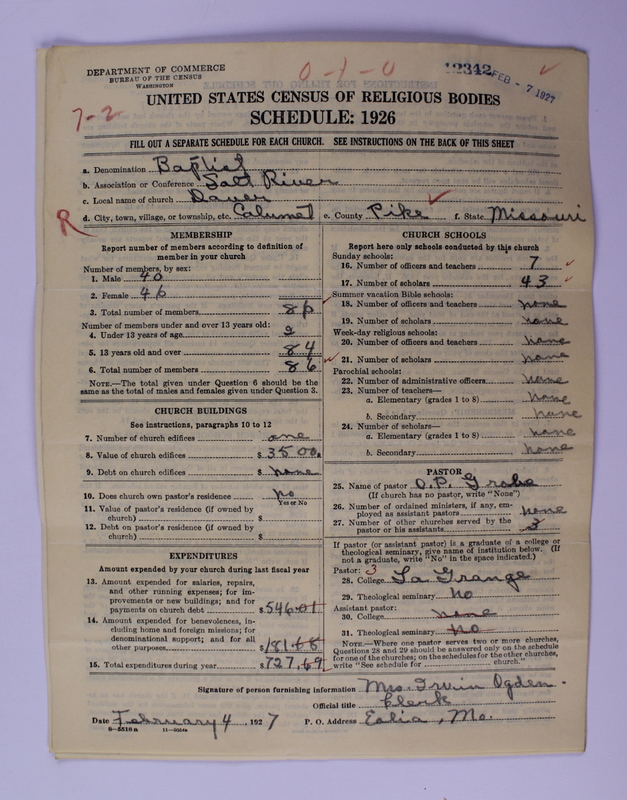 DEPARTMENT OF COMMERCE
BUREAU OF THE CENSUS
WASHINGTON
0-1-0
12342 FEB - 7 1927
7-2
UNITED STATES CENSUS OF RELIGIOUS BODIES
SCHEDULE: 1926
FILL OUT A SEPARATE SCHEDULE FOR EACH CHURCH. SEE INSTRUCTIONS ON THE BACK OF THIS SHEET
a. Denomination Baptist
b. Association or Conference Salt River
c. Local name of church Dover
R
d. City, town, village, or township, etc. Calumet e. County Pike f. State Missouri
MEMBERSHIP
Report number of members according to definition of
member in your church
Number of members, by sex:
1. Male 40
2. Female 46
3. Total number of members 86
Number of members under and over 13 years old:
4. Under 13 years of age 2
5. 13 years old and over 84
6. Total number of members 86
NOTE.—The total given under Question 6 should be the
same as the total of males and females given under Question 3.
CHURCH BUILDINGS
See instructions, paragraphs 10 to 12
7. Number of church edifices one
8. Value of church edifices $ 3500.
9. Debt on church edifices $ none
10. Does church own pastor's residence No
Yes or No
11. Value of pastor's residence (if owned by
church) $
12. Debt on pastor's residence (if owned by
church) $
EXPENDITURES
Amount expended by your church during last fiscal
year
13. Amount expended for salaries, repairs,
and other running expenses; for im-
provements or new buildings; and for
payments on church debt $ 546.01
14. Amount expended for benevolences, in-
cluding home and foreign missions; for
denominational support; and for all
other purposes $ 181.68
15. Total expenditures during year $ 727.69
CHURCH SCHOOLS
Report here only schools conducted by this church
Sunday schools:
16. Number of officers and teachers 7
17. Number of scholars 43
Summer vacation Bible schools:
18. Number of officers and teachers none
19. Number of scholars none
Week-day religious schools:
20. Number of officers and teachers none
21. Number of scholars none
Parochial schools:
22. Number of administrative officers none
23. Number of teachers—
a. Elementary (grades 1 to 8) none
b. Secondary none
24. Number of scholars—
a. Elementary (grades 1 to 8) none
b. Secondary none
PASTOR
25. Name of pastor O.P. Grobe
(If church has no pastor, write "None")
26. Number of ordained ministers, if any, em-
ployed as assistant pastors none
27. Number of other churches served by the
pastor or his assistants 3
If pastor (or assistant pastor) is a graduate of a college or
theological seminary, give name of institution below. (If
not a graduate, write "No" in the space indicated.)
Pastor: 3
28. College La Grange
29. Theological seminary No
Assistant pastor:
30. College none
31. Theological seminary No
NOTE.—Where one pastor serves two or more churches,
Questions 28 and 29 should be answered only on the schedule
for one of the churches; on the schedules for the other churches,
write "See schedule for church."
Signature of person furnishing information Mrs. Irvin Ogden.
Official title Clerk
Date February 4, 1927 P. O. Address Eolia, Mo.